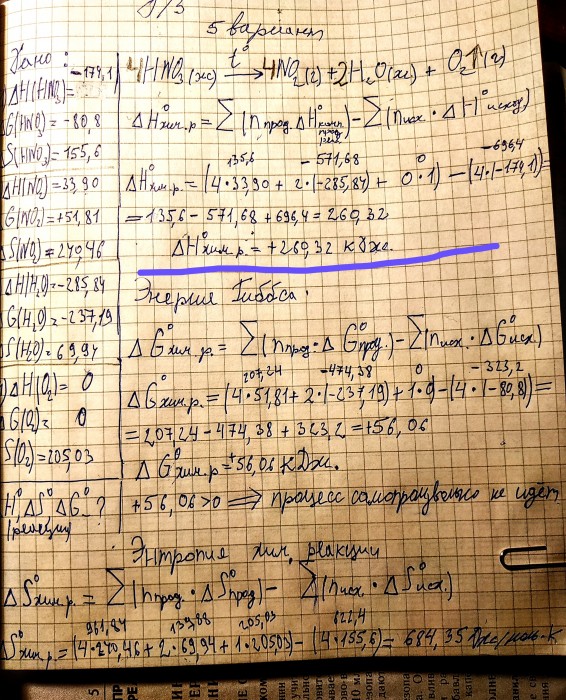 5 вариант
Дано:
ΔH(HNO₃)= -174,1
G(HNO₃)= -80,8
S(HNO₃)=155,6
ΔH(NO₂)=33,90
G(NO₂)=+51,81
S(NO₂)=240,46
ΔH(H₂O)=-285,84
G(H₂O)=-237,19
S(H₂O)=69,94
ΔH(O₂)= 0
ΔG(O₂)= 0
S(O₂)=205,03
H° ΔS° ΔG - ?
(реакции)
4HNO₃(ж) t°→ 4NO₂(г)+2H₂O(ж) + O₂↑(г)
ΔH хим.р = ∑(n прод. ΔH° прод.) - ∑(n исх. · ΔH° исход)
135,6 -571,68 0 -696,4
ΔH° хим.р. = (4·33,90 + 2·(-285,84) + 0·1) - (4·(-174,1))=
=135,6 - 571,68 + 696,4 = 260,32
ΔH° хим.р. = +260,32 кДж.
Энергия Гиббса.
ΔG° хим.р. = ∑(n прод. · ΔG° прод.) - ∑(n исх. · ΔG° исх.)
207,24 -474,38 0 -323,2
ΔG° хим.р. = (4·51,81 + 2·(-237,19) + 1·0) - (4·(-80,8))=
=207,24 - 474,38 + 323,2 = +56,06
ΔG° хим.р = +56,06 кДж.
+56,06>0 ⟹ процесс самопроизвольно не идёт
Энтропия хим. реакции
ΔS° хим.р. = ∑(n прод. · ΔS° прод) - ∑(n исх. · ΔS° исх.)
961,84 139,88 205,03 622,4
S° хим.р. = (4·240,46 + 2·69,94 + 1·205,03) - (4·155,6) = 684,35 Дж/моль·К